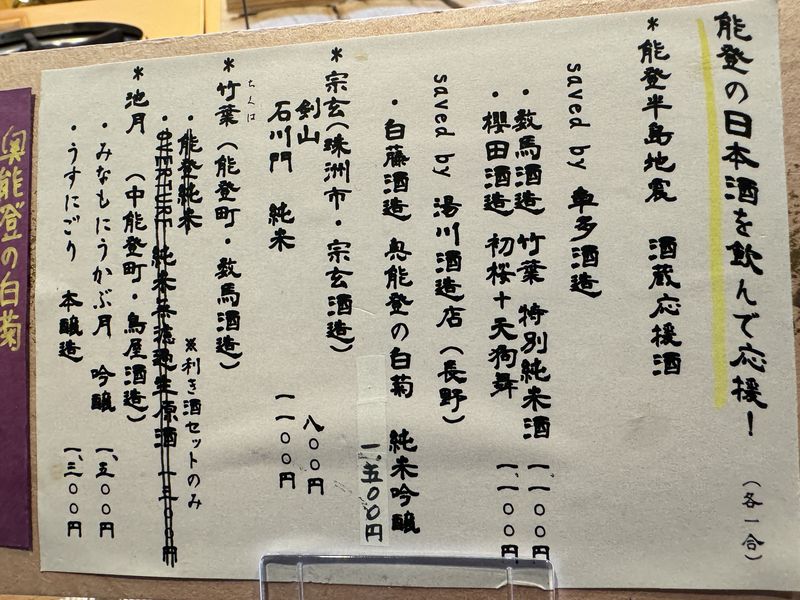 能登の日本酒を飲んで応援！
（各一合）
＊能登半島地震　酒蔵応援酒
saved by 車多酒造
・数馬酒造　竹葉　特別純米酒　一、一〇〇円
・櫻田酒造　初桜＋天狗舞　一、一〇〇円
saved by 湯川酒造店（長野）
・白藤酒造　奥能登の白菊　純米吟醸
一、五〇〇円
＊宗玄（珠洲市・宗玄酒造）
剣山　八〇〇円
石川門　純米　一一〇〇円
ちくは
＊竹葉（能登町・数馬酒造）
・能登純米　※利き酒セットのみ
純米無濾過生原酒　一、三〇〇円
＊池月（中能登町・鳥屋酒造）
・みなもにうかぶ月　吟醸　一、五〇〇円
・うすにごり　本醸造　一、三〇〇円
奥能登の白菊